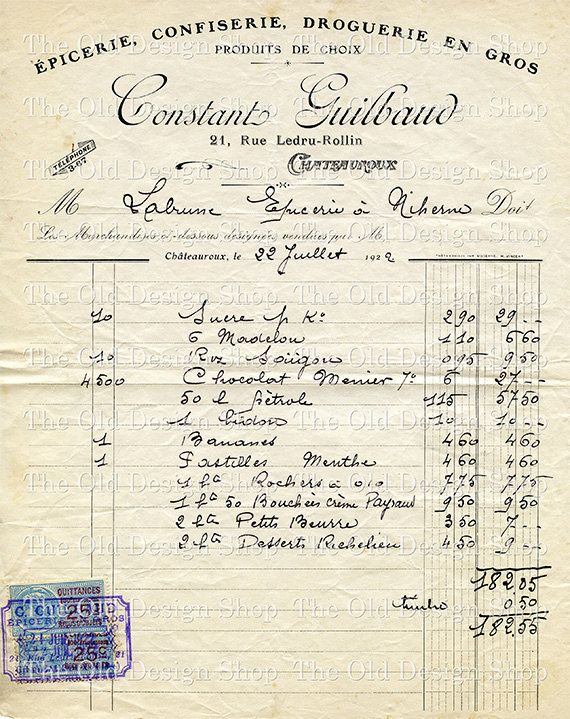 ÉPICERIE, CONFISERIE, DROGUERIE EN GROS
PRODUITS DE CHOIX
Constant Guilbaud
21, Rue Ledru-Rollin
CHATEAUROUX
TÉLÉPHONE
3-67
M Labrune Epicerie à Niherne Doit
Les Marchandises ci-dessous désignées, vendues par M.
Châteauroux, le 22 Juillet 1922
10 Sucre p Ko 2 90 29 --
6 Madelou 1 10 6 60
10 Riz Saïgon 0 95 9 50
4 500 Chocolat Menier 7o 6 27 --
50 l pétrole 115 57 50
1 bidon 10 -- 10 --
1 Bananes 4 60 4 60
1 Pastilles Menthe 4 60 4 60
1 bte Rochers à 010 7 75 7 75
1 bte 50 Bouchées crème Payraud 9 50 9 50
2 bte Petits Beurre 3 50 7 --
2 bte Desserts Richelieu 4 50 9 --
182.05
timbre 0 50
182.55
QUITTANCES
25c
ÉPICERIE EN GROS
25c
The Old Design Shop